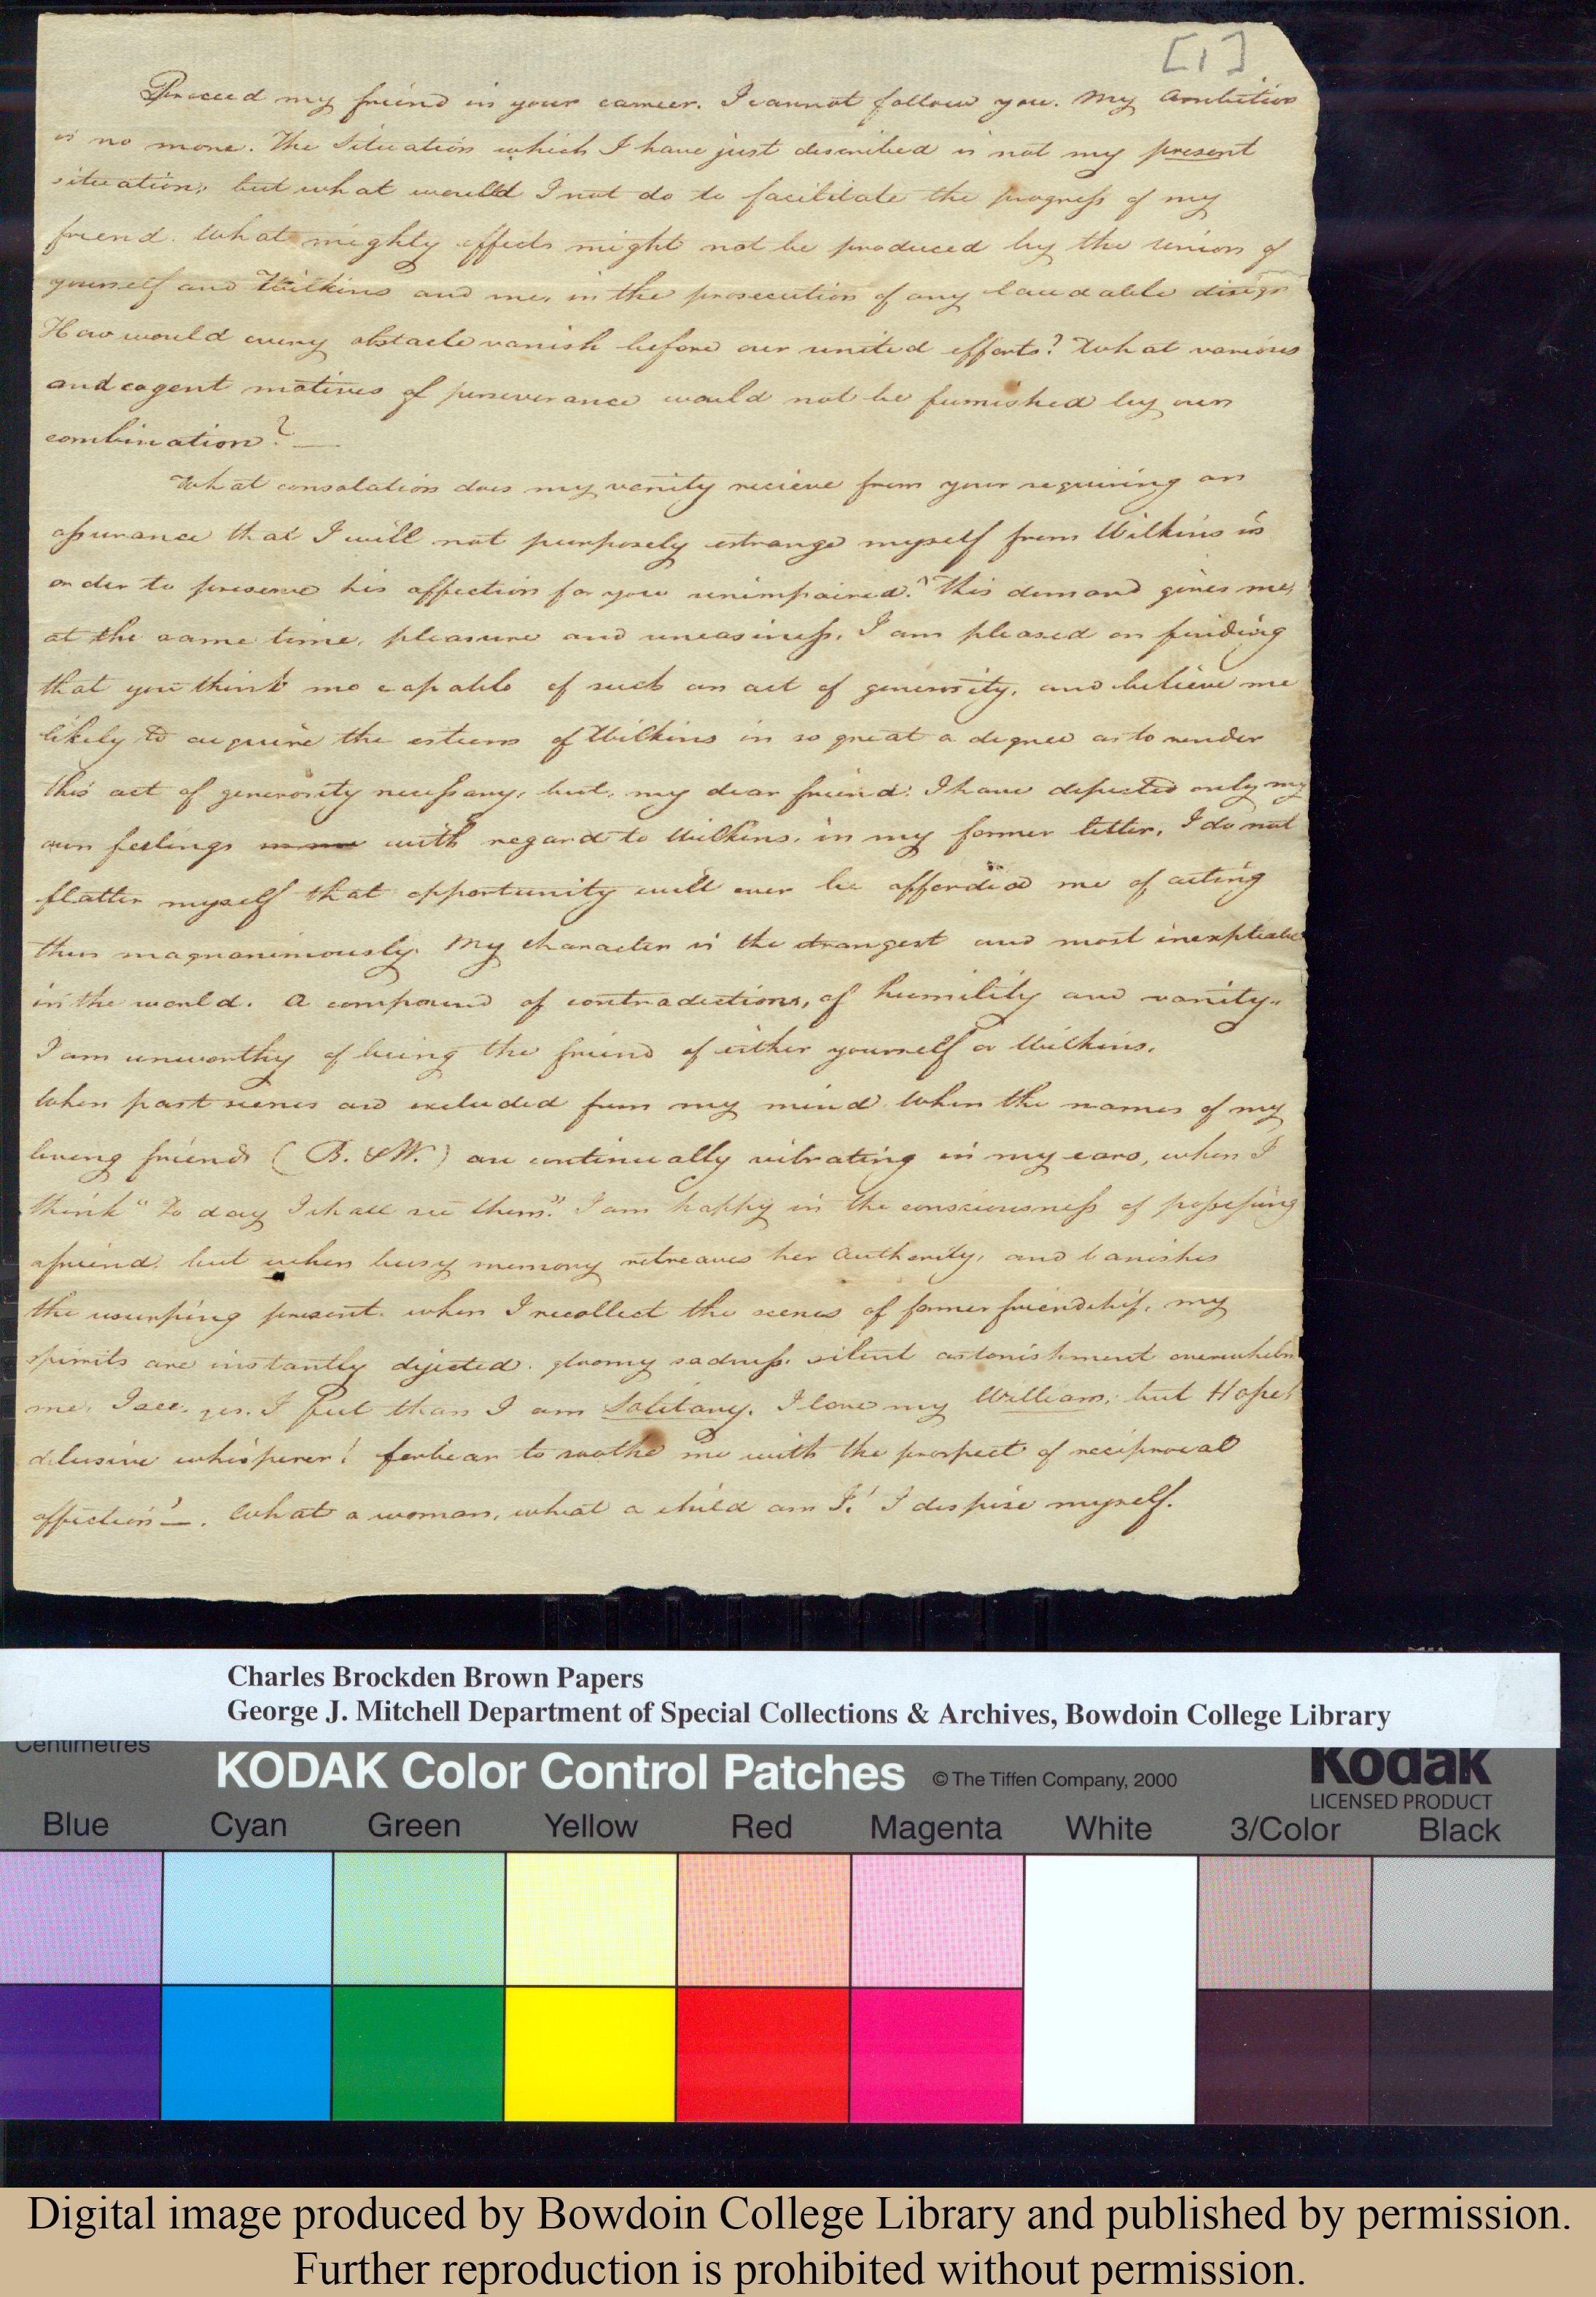 [1]
Proceed my friend in your carreer. I cannot follow you. My Ambition
is no more. The Situation which I have just described is not my present
situation; but what would I not do to facilitate the progress of my
friend. What mighty effects might not be produced by the union of
yourself and Wilkins and me, in the prosecution of any laudable design
How would every obstacle vanish before our united efforts? What various
and cogent motives of perseverance would not be furnished by our
combination? —
What consolation does my vanity recieve from your requiring an
assurance that I will not purposely estrange myself from Wilkins in
order to preserve his affection for you unimpaired? This demand gives me,
at the same time, pleasure and uneasiness. I am pleased on finding
that you think me capable of such an act of generosity, and believe me
likely to acquire the esteem of Wilkins in so great a degree as to render
this act of generosity necessary, but, my dear friend. I have depicted only my
own feelings with regard to Wilkins, in my former letter, I do not
flatter myself that opportunity will ever be afforded me of acting
thus magnanimously. My character is the strangest and most inexplicable
in the world. A compound of contradictions, of humility and vanity,
I am unworthy of being the friend of either yourself or Wilkins.
When past scenes are excluded from my mind. When the names of my
living friends (B. & W.) are continually vibrating in my ears, when I
think "To day I shall see them." I am happy in the consciousness of possessing
a friend. but when busy memory retreaves her Authority, and banishes
the usurping present. when I recollect the scenes of former friendship, my
spirits are instantly dejected. gloomy sadness, silent astonishment overwhelm
me, I see, yes. I feel than I am Solitary. I love my William; but Hope!
delusive whisperer! forbear to soothe me with the prospect of reciprocal
affection! —. What a woman, what a child am I! I despise myself.
Charles Brockden Brown Papers
George J. Mitchell Department of Special Collections & Archives, Bowdoin College Library
Centimetres
KODAK Color Control Patches © The Tiffen Company, 2000
Kodak
LICENSED PRODUCT
Blue Cyan Green Yellow Red Magenta White 3/Color Black
Digital image produced by Bowdoin College Library and published by permission.
Further reproduction is prohibited without permission.